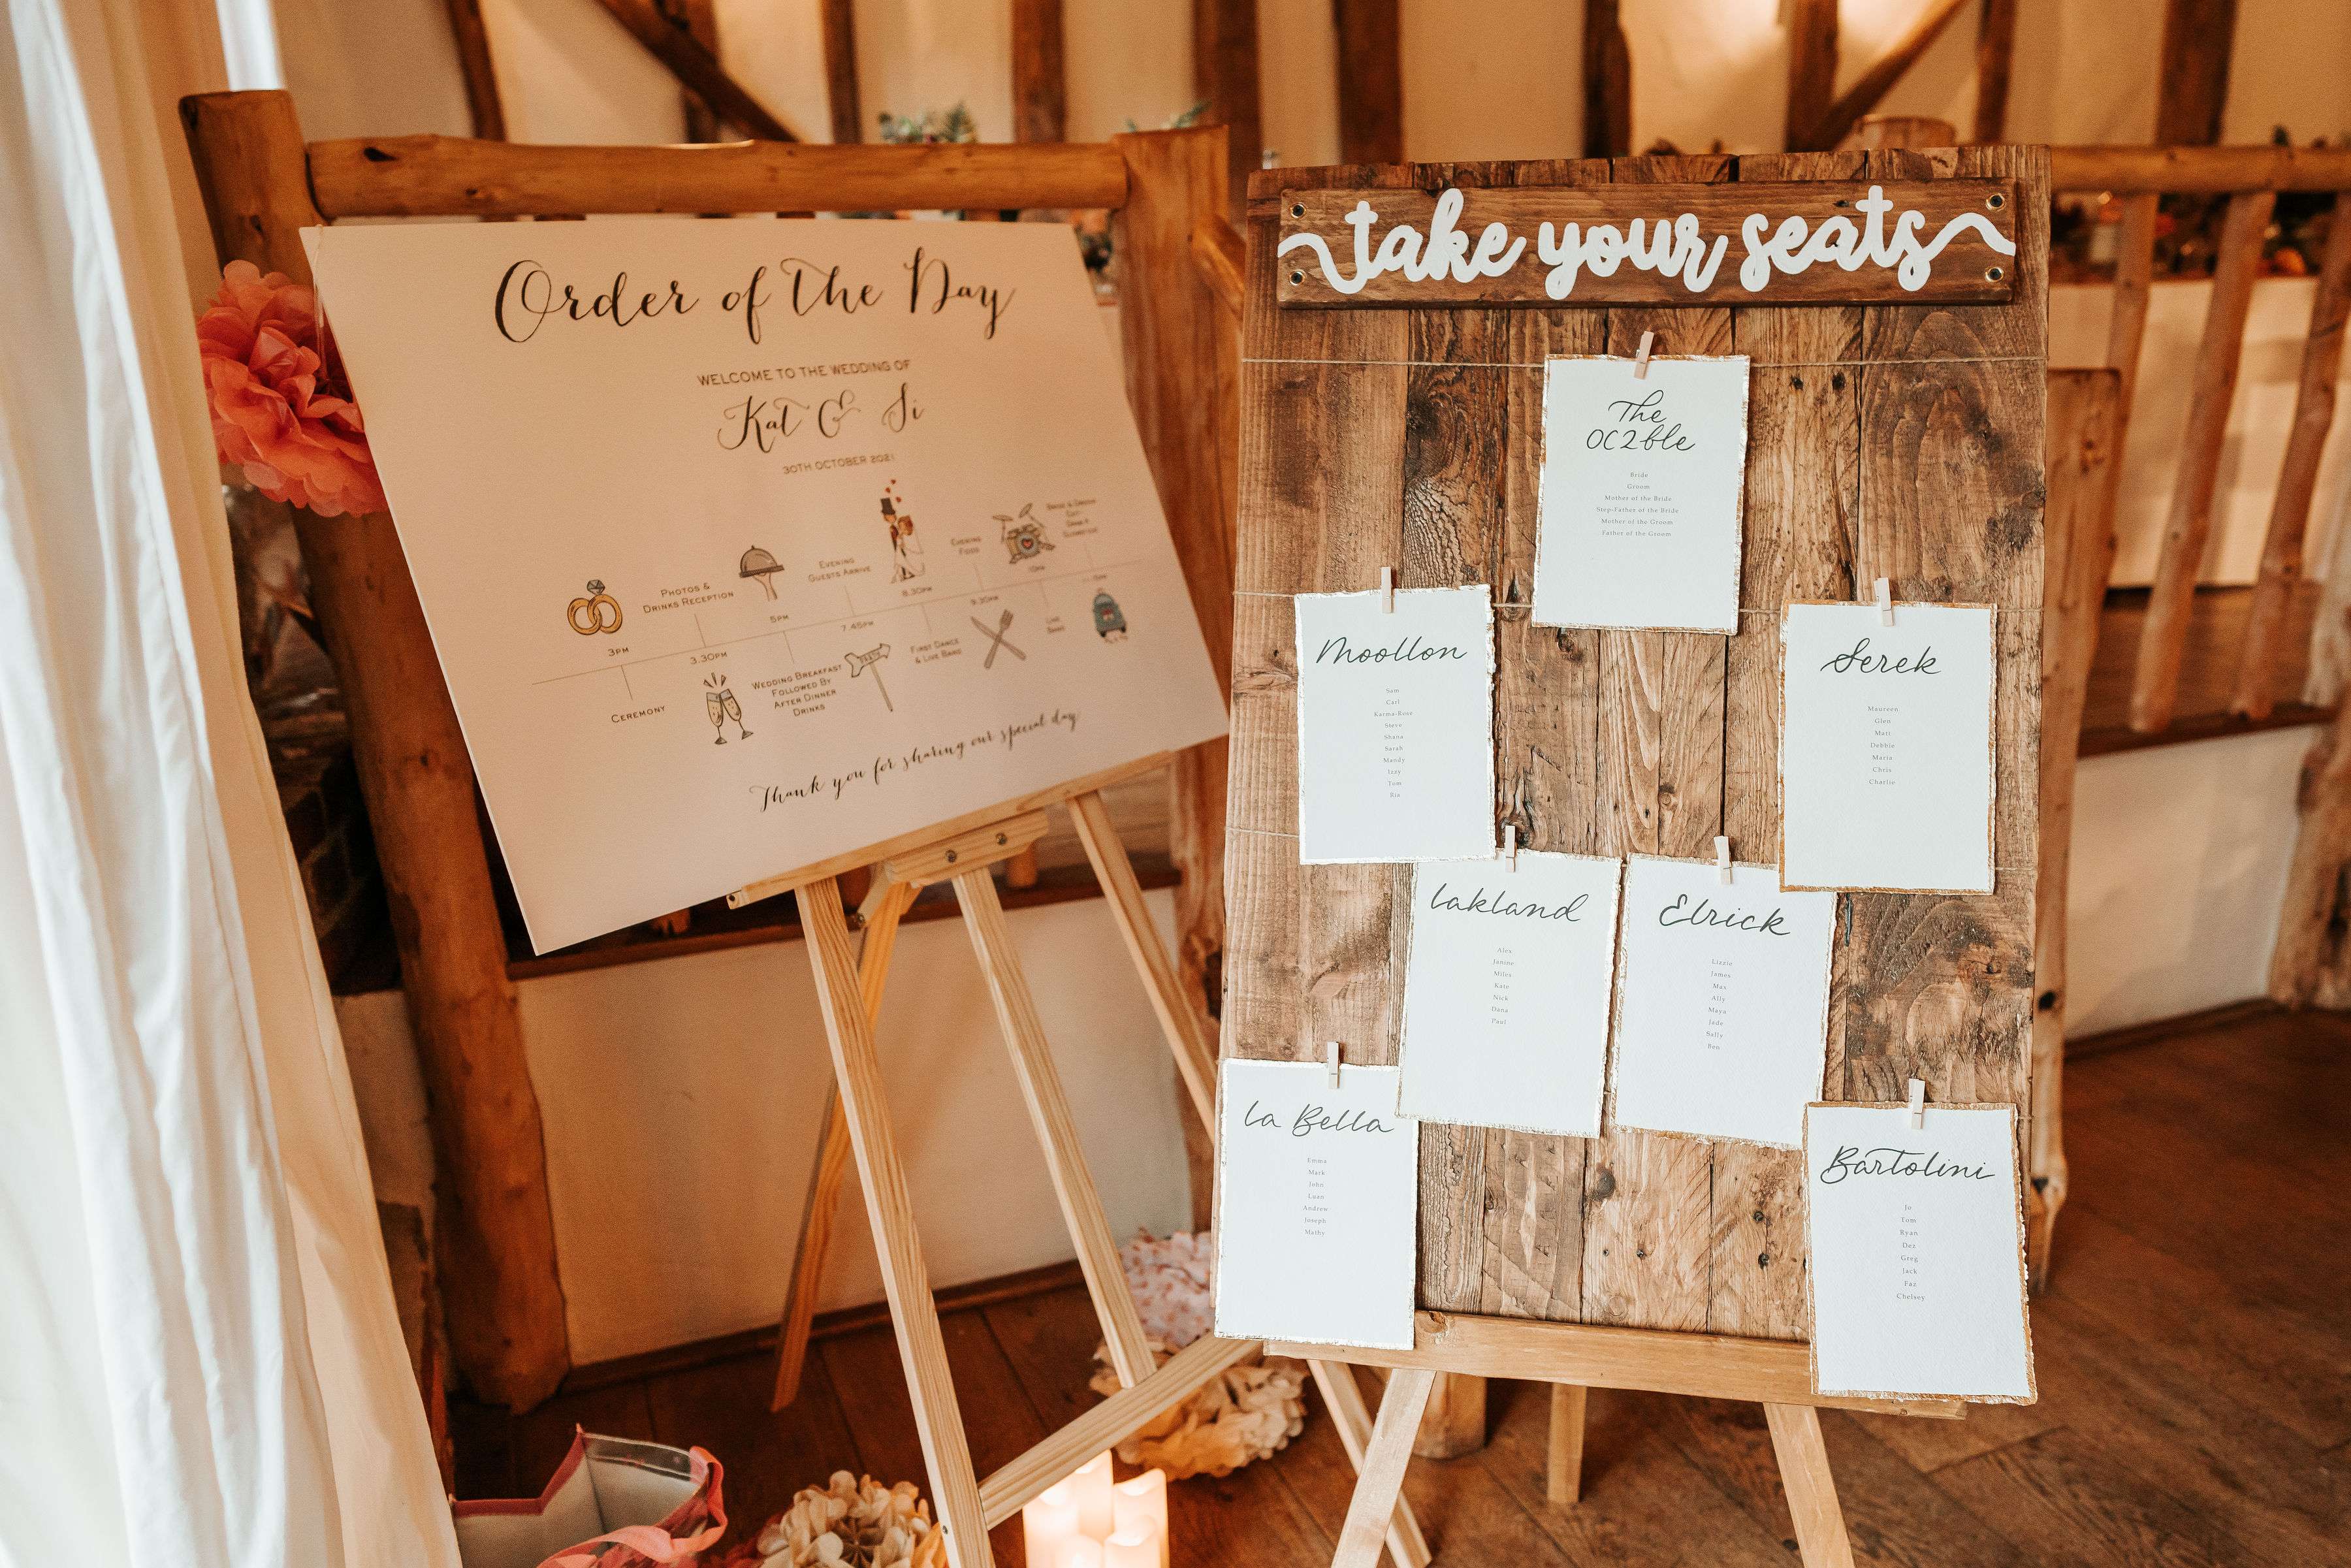 Order of the Day
WELCOME TO THE WEDDING OF
Kat & Si
30TH OCTOBER 2021
3PM
CEREMONY
3.30PM
PHOTOS &
DRINKS RECEPTION
5PM
WEDDING BREAKFAST
FOLLOWED BY
AFTER DINNER
DRINKS
7.45PM
EVENING
GUESTS ARRIVE
8.30PM
FIRST DANCE
& LIVE BAND
9.30PM
EVENING
FOOD
10PM
LIVE
BAND
Thank you for sharing our special day
take your seats
The
OC2ble
Bride
Groom
Mother of the Bride
Step-Father of the Bride
Mother of the Groom
Father of the Groom
Moollon
Sam
Carl
Karma-Rose
Steve
Shana
Sarah
Mandy
Izzy
Tom
Ria
Serek
Maureen
Glen
Matt
Debbie
Maria
Chris
Charlie
Lakland
Alex
Janine
Miles
Kate
Nick
Dana
Paul
Elrick
Lizzie
James
Max
Ally
Maya
Jade
Sally
Ben
La Bella
Emma
Mark
John
Luan
Andrew
Joseph
Mathy
Bartolini
Jo
Tom
Ryan
Dez
Greg
Jack
Faz
Chelsey